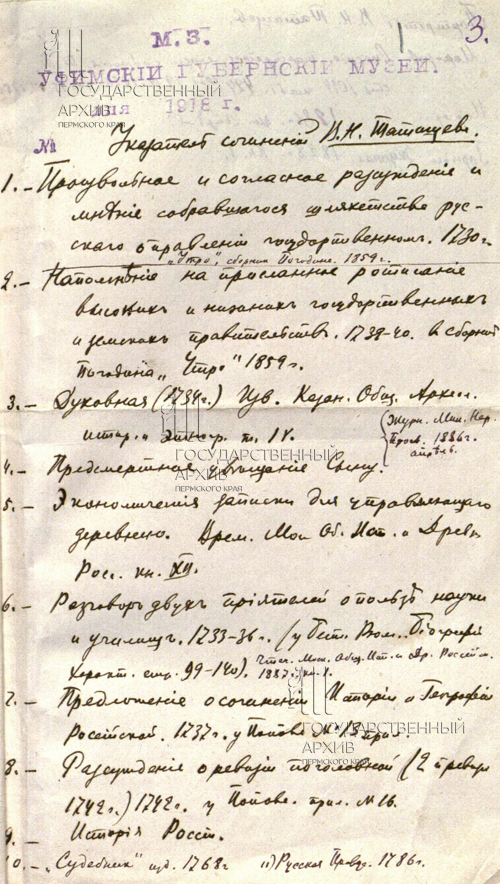 3.
М. З.
УФИМСКІЙ ГУБЕРНСКІЙ МУЗЕЙ.
ГОСУДАРСТВЕННЫЙ
АРХИВ
ПЕРМСКОГО КРАЯ
дня 1918 г.
№
Указатель сочиненій В. Н. Татищева.
1. – Произвольное и согласное разсужденіе и
мнѣніе собравшагося шляхетства рус-
скаго о правленіи государственномъ. 1730 г.
„Утро", сборник Погодина. 1859 г.
2. – Напомнѣніе на присланное росписаніе
высоких и низких государственных
и земских правительств. 1739-40. в сборник
Погодина „Утро" 1859 г.
3. – Духовная (1734 г.) Изв. Казан. Общ. Археол.
истор. и Этногр. т. IV.
(Журн. Мин. Нар.
Просв. 1886 г.
апрѣль.
ГОСУДАРСТВЕННЫЙ
АРХИВ
ПЕРМСКОГО КРАЯ
4. – Предсмертное увѣщание Сыну.
5. – Экономическія записки для управляющаго
деревнею. Врем. Мос Об. Ист. и Древн
Росс. кн. XII.
6. – Разговор двухъ пріятелей о пользѣ науки
и училищ. 1733-36 г. (у Бест. Рюм. Біографіи
Характ. стр. 99-140). Чтен. Мос. Общ. Ист. и Др. Россійск.
1887 г. кн. I.
7. – Предложеніе о сочинении Исторіи и Географіи
Россійской. 1737 г. у Попова № 13 прил.
ГОСУДАРСТВЕННЫЙ
АРХИВ
ПЕРМСКОГО КРАЯ
8. – Разсужденіе о ревизіи поголовной (2 й ревиз
1742 г.) 1742 г. у Попова. прил. № 16.
9. – Исторія Россі.
10. – „Судебник" изд. 1768 г 11) Русская Правда. 1786 г.